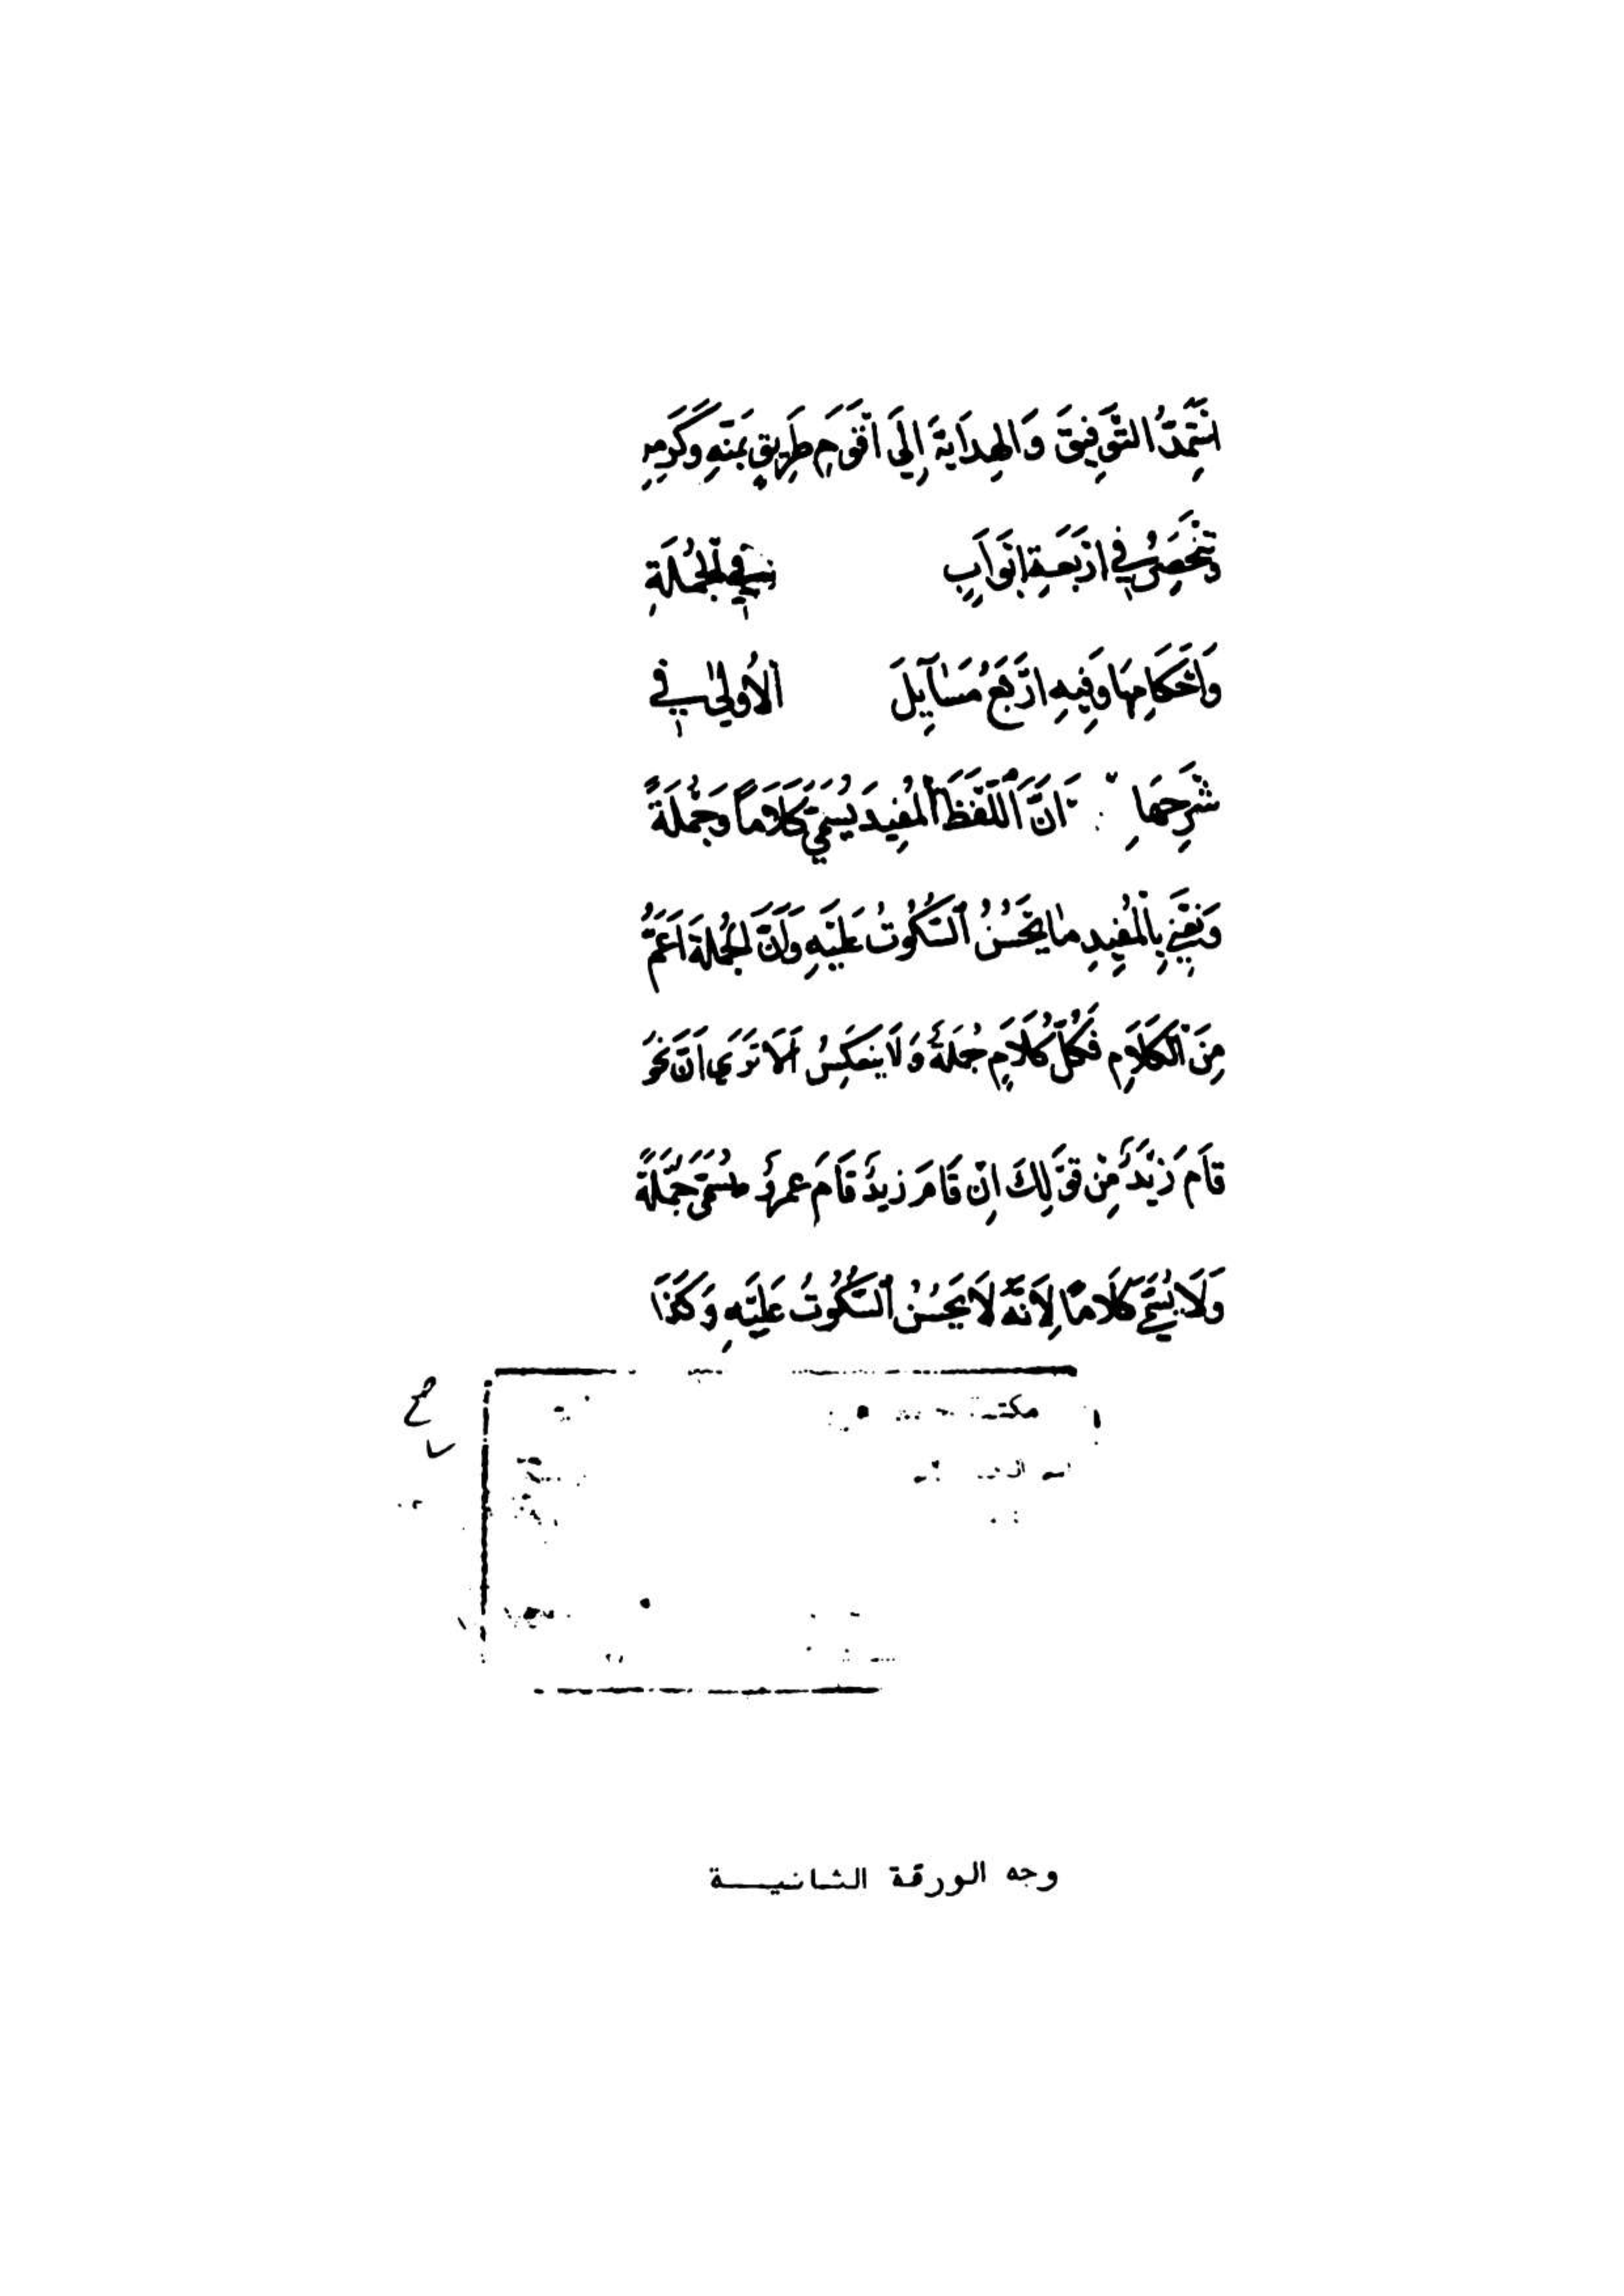 اسْتَمِدُّ التَّوْفِيقَ وَالهِدَايَةَ إِلَى اقْوَمِ طَرِيقٍ بِمَنِّهِ وَكَرَمِهِ
وَتَنْحَصِرُ فِي ارْبَعَةِ ابْوَابٍ فِي الْجُمْلَةِ
وَاحْكَامِهَا وَفِيهِ ارْبَعُ مَسَآيِلَ الأُولَى فِي
شَرْحِهَا انَّ اللَّفْظَ الْمُفِيدَ يُسَمَّى كَلَامًا وَجُمْلَةً
وَنَعْنِي بِالْمُفِيدِ مَا يَحْسُنُ السُّكُوتُ عَلَيْهِ وَانَّ الْجُمْلَةَ اعَمُّ
مِنَ الْكَلَامِ فَكُلُّ كَلَامٍ جُمْلَةٌ وَلَا يَنْعَكِسُ الَا تَرَى انَّ نَحْوَ
قَامَ زَيْدٌ مِنْ قَوْلِكَ اِنْ قَامَ زَيدٌ قَامَ عمرٌو يُسَمَّى جُمْلَةً
وَلَا يُسَمَّى كَلَامًا لِانَّهُ لَا يَحْسُنُ السُّكُوتُ عَلَيْهِ وَكَذَا
وجه الورقة الثانيـــة